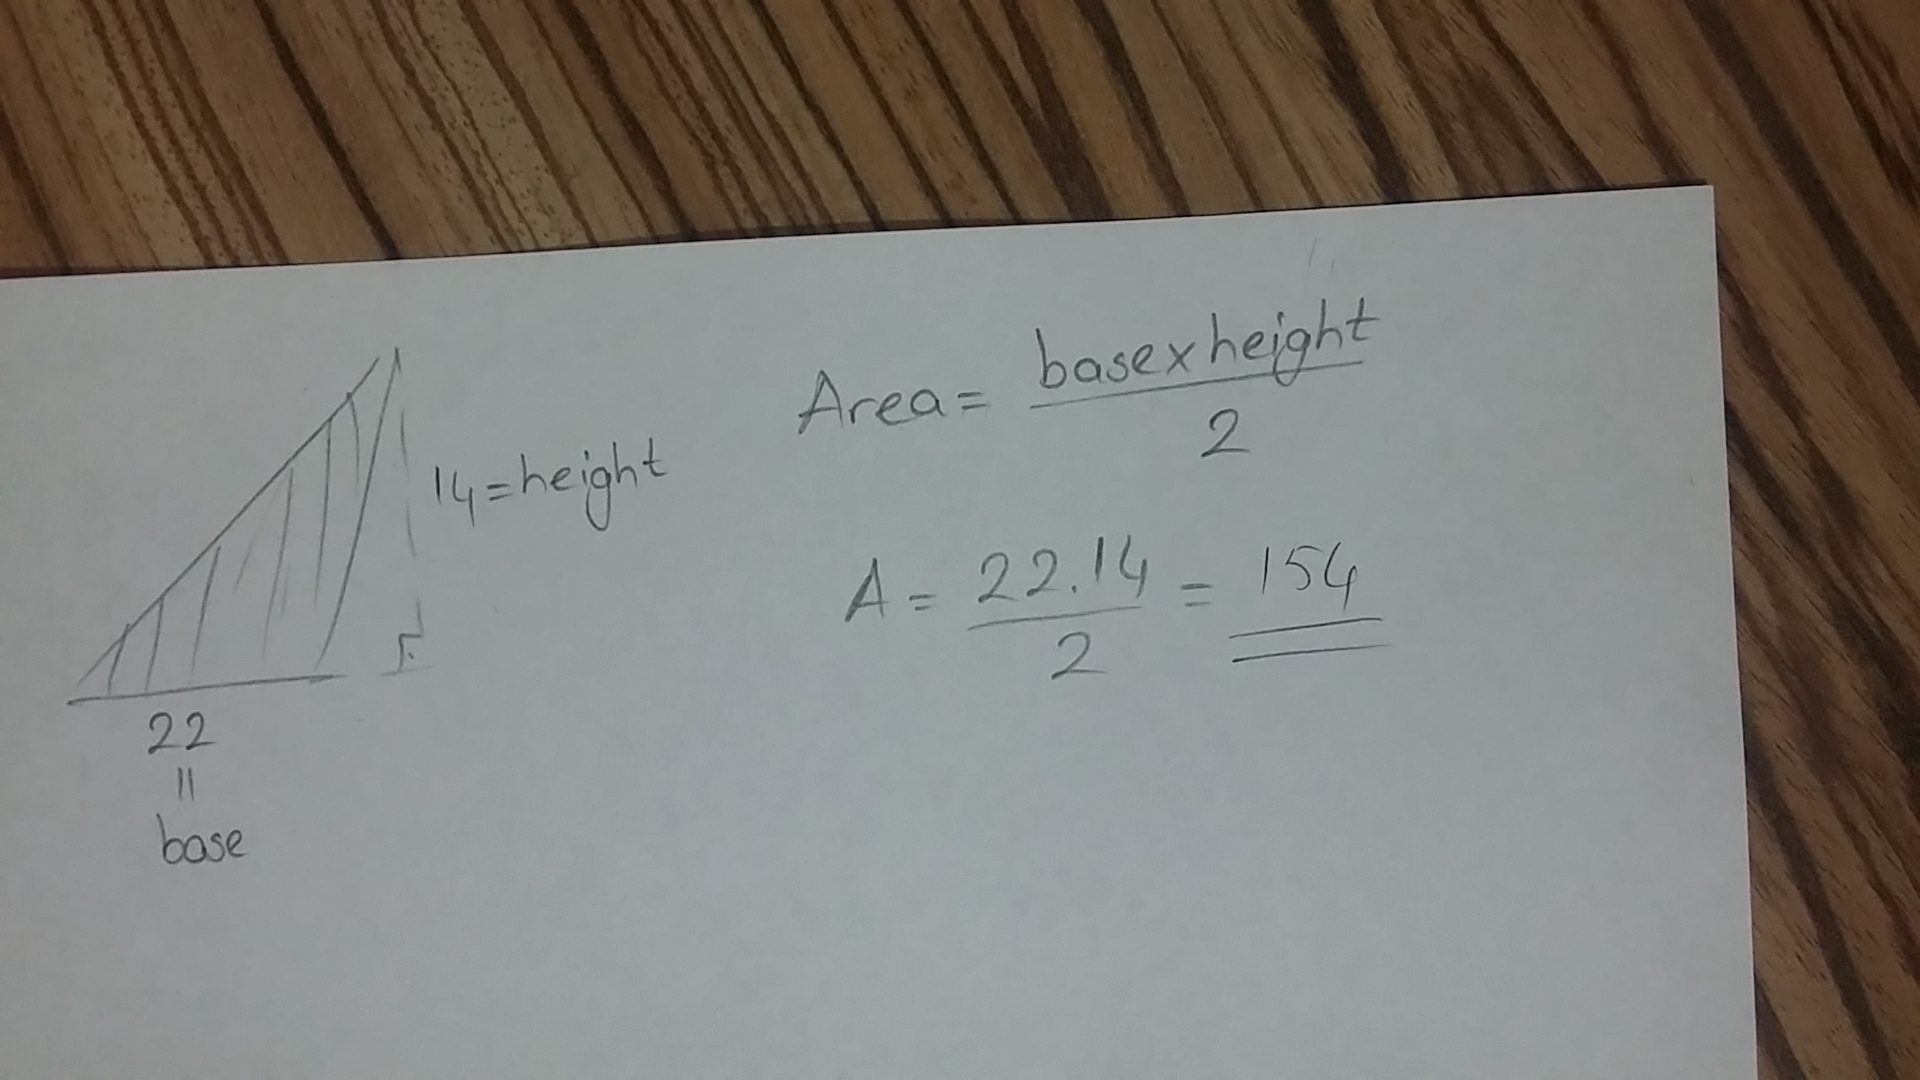 Area = base x height / 2
14 = height
A = 22.14 / 2 = 154
22
=
base